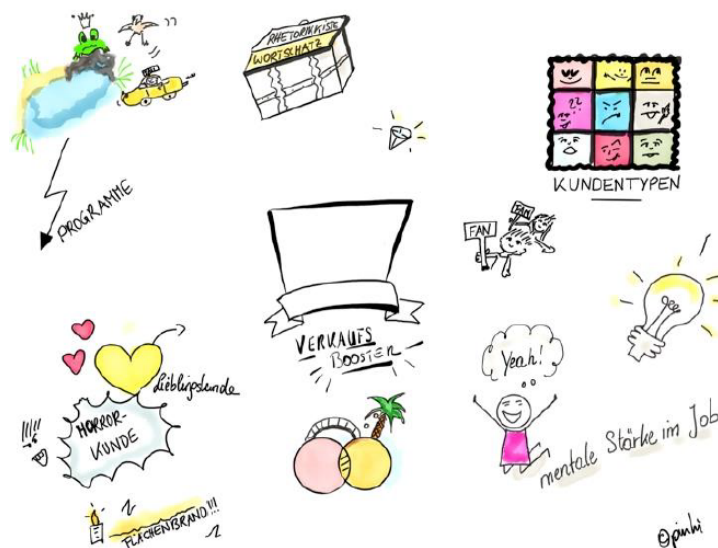 RHETORIKKISTE
WORTSCHATZ
KUNDENTYPEN
PROGRAMME
FAN
FAN
VERKAUFS
BOOSTER
Yeah!
Lieblingskunde
!!!!
HORROR-
KUNDE
mentale Stärke im Job
FLÄCHENBRAND!!!